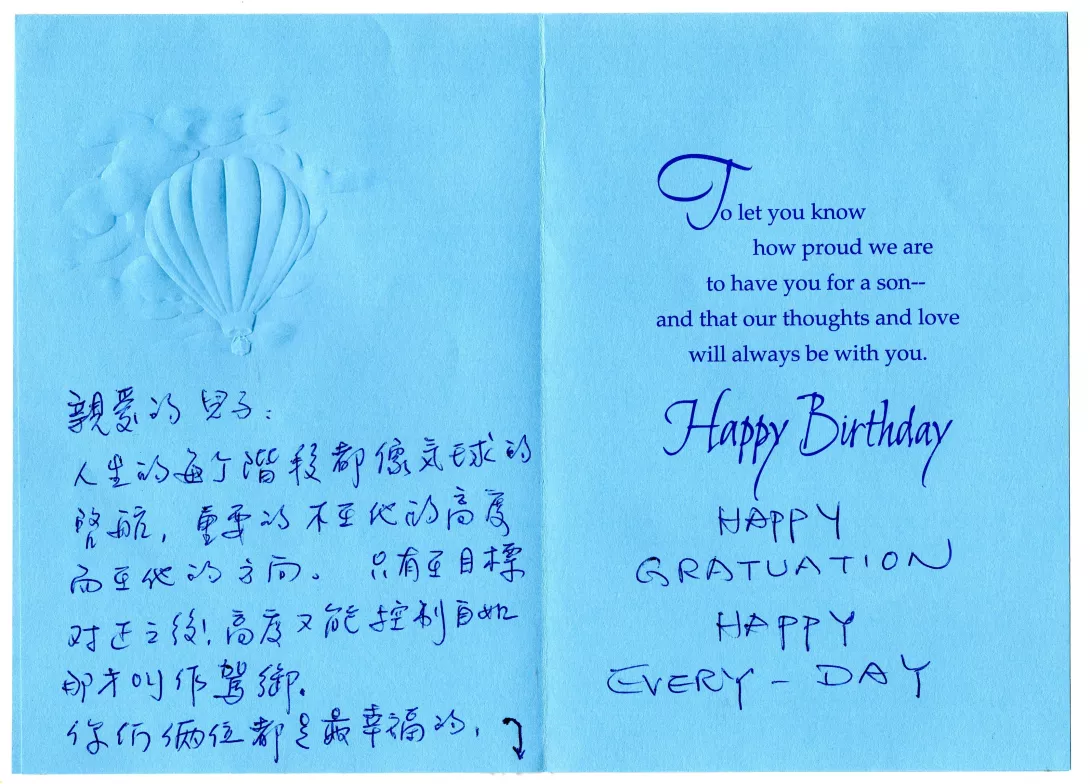 親愛的兒子：
人生的每个階段都像気球的
啓航，重要的不在他的高度
而在他的方向。只有在目標
对正之後！高度又能控制自如
那才叫作駕御.
你们俩位都是最幸福的，
To let you know
how proud we are
to have you for a son--
and that our thoughts and love
will always be with you.
Happy Birthday
HAPPY
GRATUATION
HAPPY
EVERY - DAY